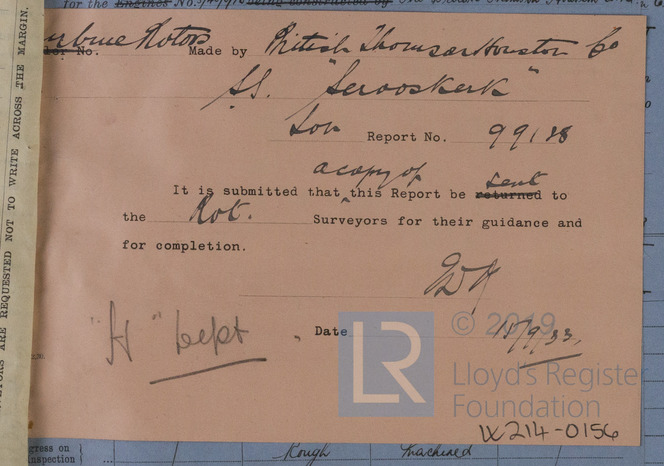 for the Engines No.
Turbine Rotors Made by British Thomson Houston Co
No.
SS. "Serooskerk"
Lon Report No. 99138
a copy of sent
It is submitted that ^ this Report be returned to
the Rot. Surveyors for their guidance and
for completion.
"H" Dept
Date 15/9/33.
© 2019
LR
Lloyd's Register
Foundation
LX214-0156
ARE REQUESTED NOT TO WRITE ACROSS THE MARGIN.
gress on
nspection } ... Rough Machined